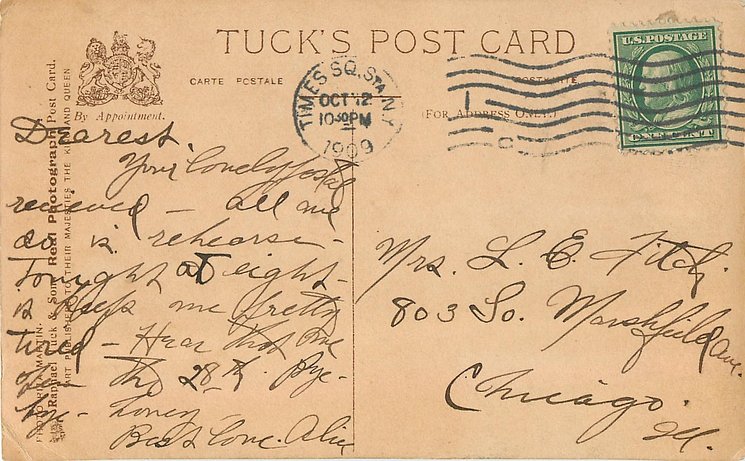 TUCK'S POST CARD
CARTE POSTALE
By Appointment.
(FOR ADDRESS ONLY.)
U.S. POSTAGE
ONE CENT
TIMES SQ. STA. N.Y.
OCT 12
10-30 PM
1909
PHOTO RITA MARTIN.
Raphael Tuck & Sons' "Real Photograph" Post Card.
ART PUBLISHERS TO THEIR MAJESTIES THE KING AND QUEEN
Dearest
Your lovely postal
received — all we
do is rehearse —
Tonight at eight —
is keeps me pretty
tired — Hear that
the 28th. Bye-
bye — honey
Best love. Alice
Mrs. L. E. Fitch
803 So. Marshfield Ave.
Chicago.
Ill.